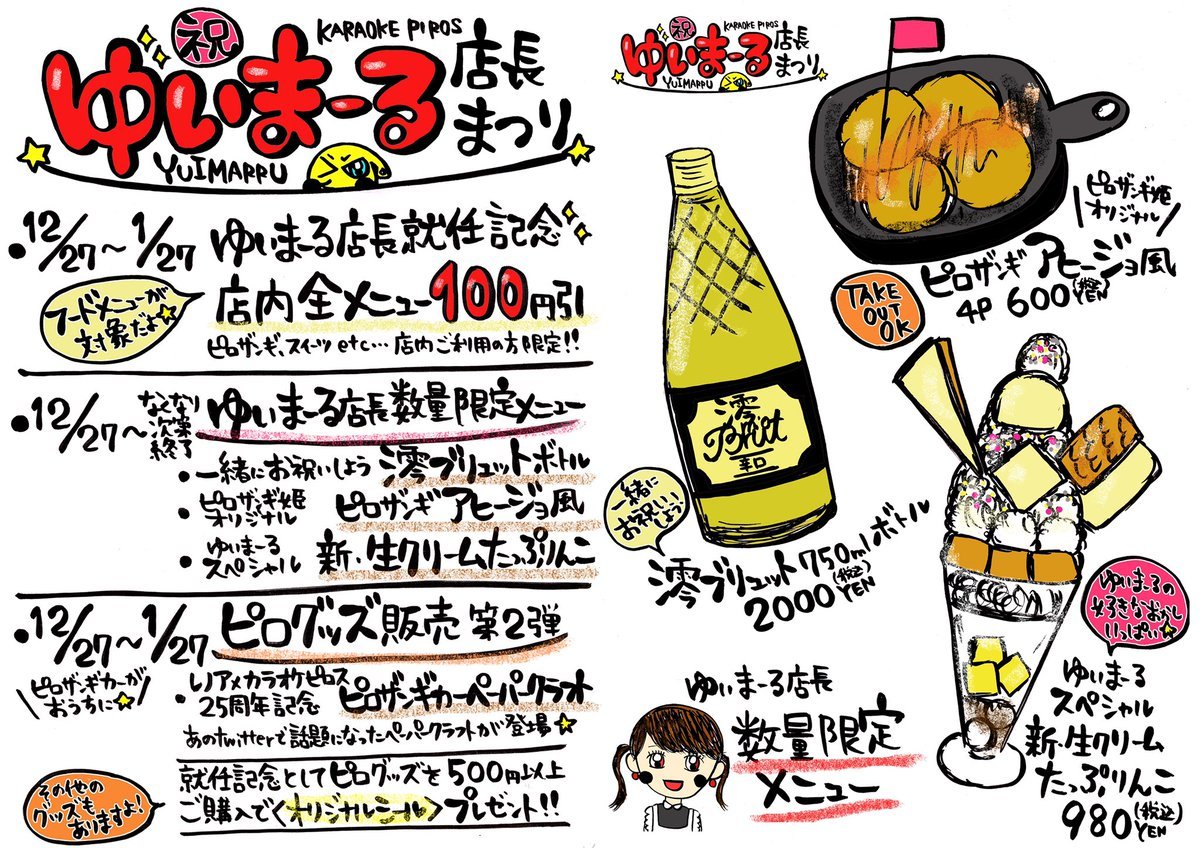 祝
KARAOKE PIROS
ゆいまーる店長まつり
YUIMARRU
・12/27〜1/27 ゆいまーる店長就任記念
フードメニューが対象だよ☆
店内全メニュー100円引
ピロザンギ、スイーツetc…店内ご利用の方限定!!
・12/27〜なくなり次第終了
ゆいまーる店長数量限定メニュー
・一緒にお祝いしよう 澪ブリュットボトル
・ピロザンギ姫オリジナル ピロザンギアヒージョ風
・ゆいまーるスペシャル 新・生クリームたっぷりんこ
・12/27〜1/27 ピログッズ販売 第2弾
ピロザンギカーがおうちに☆
・レノアメカラオケピロス25周年記念 ピロザンギカーペーパークラフト
あのtwitterで話題になったペーパークラフトが登場☆
その他のグッズもありますよ!
就任記念としてピログッズを500円以上
ご購入で<オリジナルシール>プレゼント!!
祝
KARAOKE PIROS
ゆいまーる店長まつり
YUIMARRU
ピロザンギ姫オリジナル
ピロザンギ アヒージョ風
4P 600(税込)YEN
TAKE OUT OK
澪
Brut
辛口
一緒にお祝いしよう
澪ブリュット750mlボトル
2000(税込)YEN
ゆいまーるの好きなおかしいっぱい☆
ゆいまーる
スペシャル
新・生クリーム
たっぷりんこ
980(税込)YEN
ゆいまーる店長
数量限定
メニュー